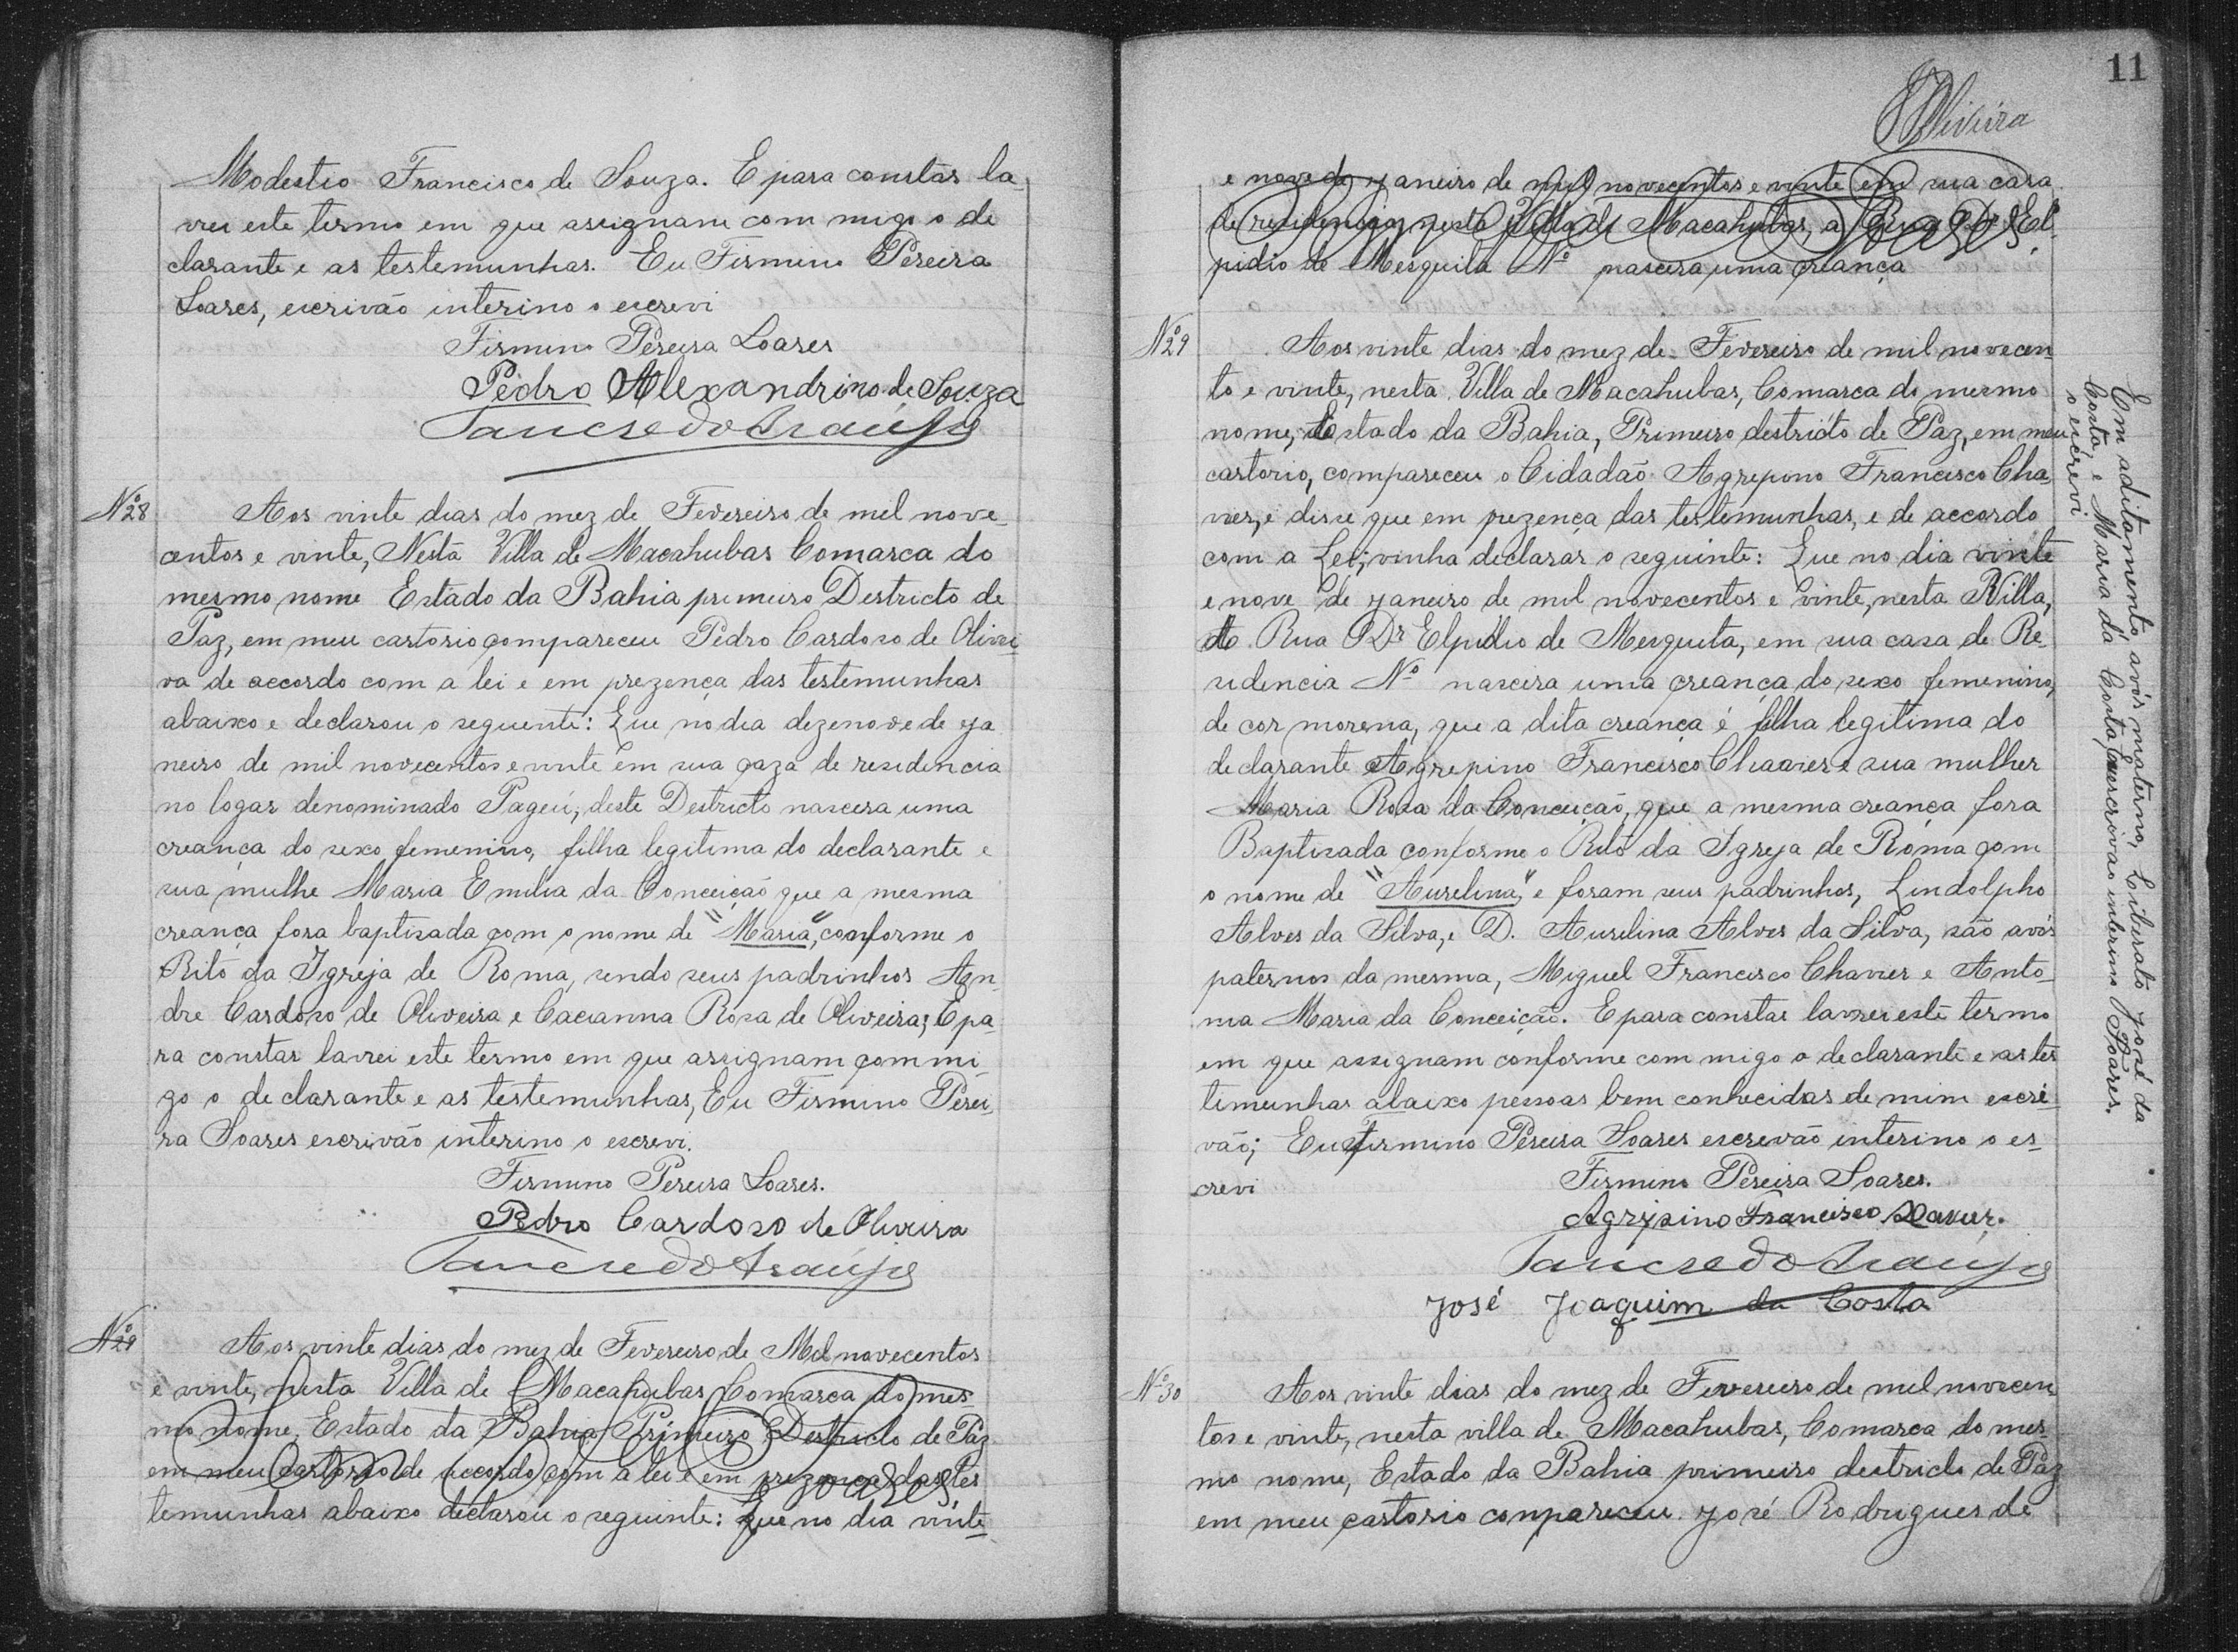 Modestio Francisco de Souza. E para constar la
vrei este termo em que assignam com migo o de
clarante e as testemunhas. Eu Firmino Pereira
Soares, escrivão interino o escrevi
Firmino Pereira Soares
Pedro Alexandrino de Souza
Tancredo Araujo
Nº 28
Aos vinte dias do mez de Fevereiro de mil nove-
centos e vinte, Nesta Villa de Macahubas Comarca do
mesmo nome Estado da Bahia primeiro Destricto de
Paz, em meu cartorio compareceu Pedro Cardoso de Olivei-
ra de accordo com a lei e em prezença das testemunhas
abaixo e declarou o seguente: Que no dia dezenove de ja
neiro de mil novecentos e vinte em sua caza de residencia
no logar denominado Pageú, deste Destricto nascera uma
creança do sexo femenino, filha legitima do declarante e
sua mulhe Maria Emilia da Conceição que a mesma
creança fora baptisada com o nome de "Maria", conforme o
Rito da Igreja de Roma, sendo seus padrinhos An-
dre Cardoso de Oliveira e Cacianna Rosa de Oliveira; E pa-
ra constar lavrei este termo em que assignam com mi-
go o declarante e as testemunhas, Eu Firmino Perei-
ra Soares escrivão interino o escrevi.
Firmino Pereira Soares.
Pedro Cardoso de Oliveira
Tancredo Araujo
Nº 29
Aos vinte dias do mez de Fevereiro de Mil novecentos
e vinte, nesta Villa de Macahubas Comarca do mes-
mo nome, Estado da Bahia Primeiro Destricto de Paz
em meu cartorio de accordo com a lei e em prezença das tes
temunhas abaixo declarou o seguinte: Que no dia vinte
11
Oliveira
e nove de janeiro de mil novecentos e vinte em sua casa
de residencia nesta Villa de Macahubas, a Rua Dr El-
pidio de Mesquita Nº nascera uma creança
Nº 29
Aos vinte dias do mez de Fevereiro de mil novecen
to e vinte, nesta Villa de Macahubas, Comarca do mesmo
nome, Estado da Bahia, Primeiro destricto de Paz, em meu
cartorio, compareceu o Cidadão Agrepino Francisco Cha-
vier, e disse que em prezença das testemunhas, e de accordo
com a Lei, vinha declarar o seguinte: Que no dia vinte
e nove de janeiro de mil novecentos e vinte, nesta Villa,
A Rua Dr Elpidio de Mesquita, em sua casa de Re-
sidencia Nº nascera uma creança do sexo femenino,
de cor morena, que a dita creança é filha legitima do
declarante Agrepino Francisco Chavier e sua mulher
Maria Rosa da Conceição, que a mesma creança fora
Baptisada conforme o Rito da Igreja de Roma com
o nome de "Aurelina", e foram seus padrinhos, Lindolpho
Alves da Silva, e D. Aurelina Alves da Silva, são avós
paternos da mesma, Miguel Francisco Chavier e Anto-
nia Maria da Conceição. E para constar lavrei este termo
em que assignam conforme com migo o declarante e as tes
timunhas abaixo pessoas bem conhecidas de mim escri-
vão; Eu Firmino Pereira Soares escrevão interino o es-
crevi
Firmino Pereira Soares.
Agripino Francisco Xavier.
Tancredo Araujo
José Joaquim da Costa
Em aditamento avós materno, Liberato José da
Costa, e Maria da Costa, Eu escrivão interino Soares.
o escrevi
Nº 30
Aos vinte dias do mez de Fevereiro de mil novecen
tos e vinte, nesta villa de Macahubas, Comarca do mes-
mo nome, Estado da Bahia primeiro destricto de Paz
em meu cartorio compareceu José Rodrigues de